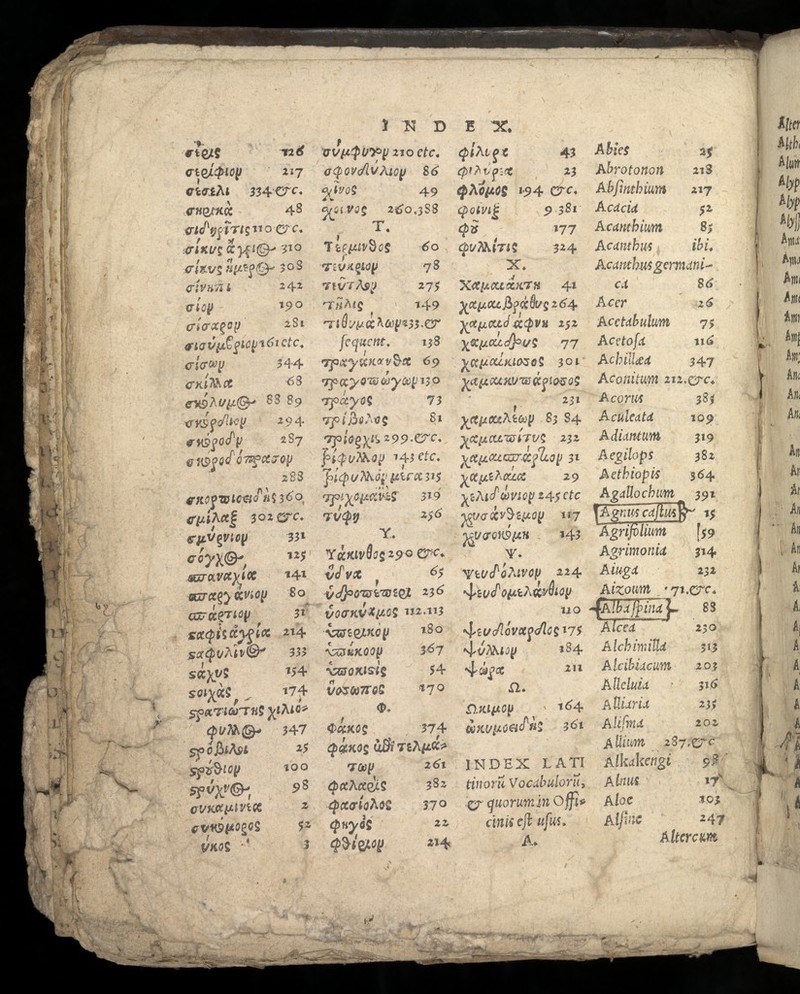 INDEX.
σέριφιον 217
σέσελι 334 &c.
σηρικὰ 48
σίκυς ἄγριος 310
σίκυς ἥμερος 308
σίνηπι 242
σίον 190
σίσαρον 281
σισύμβριον 161 etc.
σίσων 344
σκίλλα 68
σκόλυμος 88 89
σκόρδιον 294
σκόροδον 287
σκοροδόπρασον
288
σκορπιοειδὴς 360
σμίλαξ 302 &c.
σμύρνιον 331
σόγχος 125
σπαργάνιον 80
σπάρτιον 31
σταφὶς ἀγρία 214
σταφυλῖνος 333
στάχυς 154
στοιχὰς 174
στρατιώτης χιλιό-
φυλλος 347
στρόβιλοι 25
στρούθιον 100
στρύχνος 98
συκαμινέα 2
συκόμορος 52
σύκος 3
σύμφυτον 210 etc.
σφονδύλιον 86
σχῖνος 49
σχοῖνος 260.388
T.
Τέρμινθος 60
τεύκριον 78
τεῦτλον 275
τῆλις 149
τιθύμαλλων 133. &
sequent. 138
τραγάκανθα 69
τραγοπώγων 130
τράγος 73
τρίβολος 81
τριόρχις 299. &c.
τρίφυλλον 143 etc.
τριχομανὲς 319
τύφη 256
Υ.
Υάκινθος 290 &c.
ὕδνα 65
ὑδροπέπερι 236
ὑοσκύαμος 112.113
ὑπερικὸν 180
ὑπήκοον 367
ὑποκιστὶς 54
ὕσσωπος 170
Φ.
Φακὸς 374
φακὸς ἐπὶ τελμά-
των 261
φαλαρὶς 382
φασίολος 370
φηγὸς 22
φθείριον 214
φιλύρα 23
φλόμος 194 &c.
φοίνιξ 9.381
φοῦ 177
φυλλίτις 324
X.
Χαμαιάκτη 41
χαμαίβραθυς 264
χαμαιδάφνη 252
χαμαίδρυς 77
χαμαίκισσος 301
χαμαικυπάρισσος
231
χαμαιλέων 83 84
χαμαιπίτυς 232
χαμελαία 29
χελιδώνιον 245 etc
χρυσάνθεμον 117
χρυσοκόμη 143
Ψ.
Ψευδόλινον 224
ψευδομελάνθιον
110
ψευδόναρδος 175
ψύλλιον 184
ψώρα 211
Ω.
Ωκιμον 164
ὠκυμοειδὴς 361
INDEX LATI
tinorũ Vocabulorũ,
& quorum in Offi-
cinis est usus.
A.
Abies 25
Abrotonon 218
Absinthium 217
Acacia 52
Acanthium 85
Acanthus ibi.
Acanthus germani-
ca 86
Acer 26
Acetabulum 75
Acetosa 116
Achillæa 347
Aconitum 212. &c.
Acorus 385
Aculeata 109
Adiantum 319
Aegilops 382
Aethiopis 364
Agallochum 391
Agnus castus 15
Agrifolium 59
Agrimonia 314
Aiuga 232
Aizoum 71. &c.
Alba spina 88
Alcea 230
Alchimilla 313
Alcibiacum 203
Alleluia 316
Alliaria 235
Alisma 202
Allium 287. &c
Alkakengi 98
Alnus 17
Aloe 103
Alsine 247
Altercum